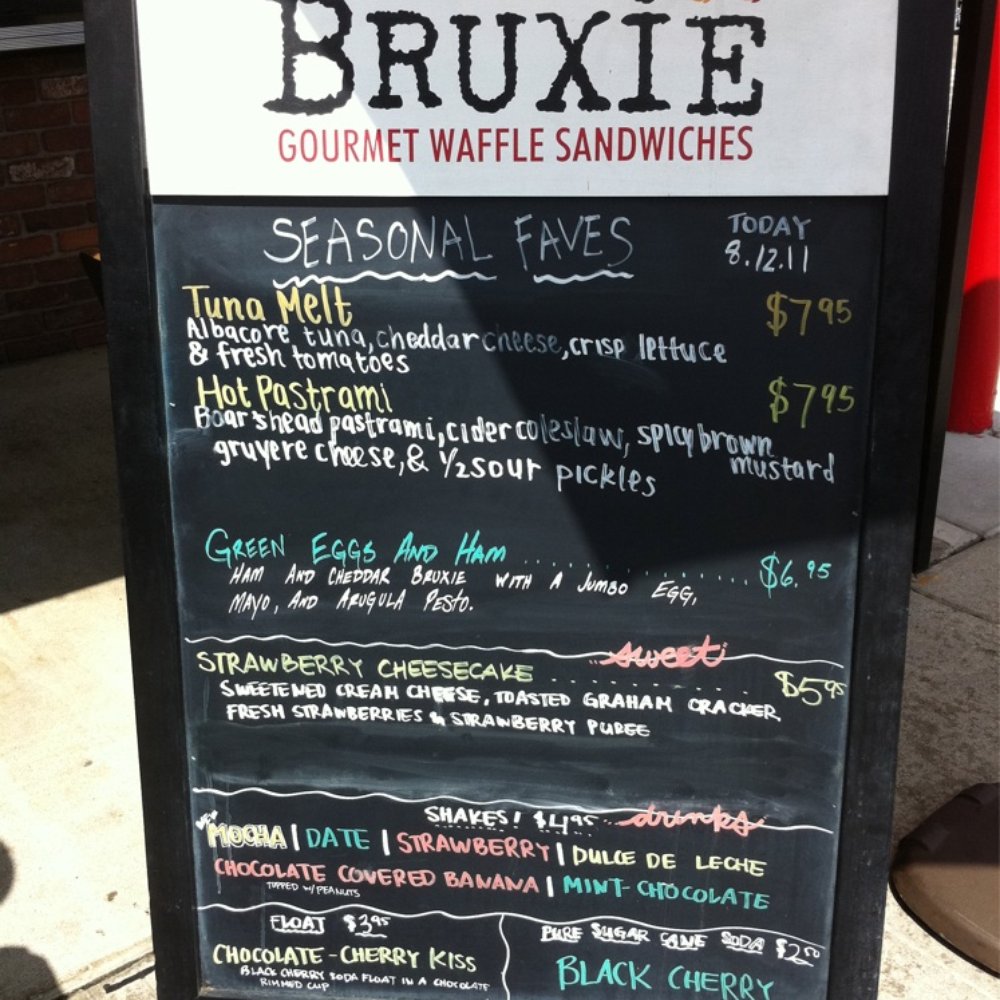 BRUXIE
GOURMET WAFFLE SANDWICHES
SEASONAL FAVES
TODAY
8.12.11
Tuna Melt $7.95
Albacore tuna, cheddar cheese, crisp lettuce
& fresh tomatoes
Hot Pastrami $7.95
Boar's head pastrami, cider coleslaw, spicy brown
mustard
gruyere cheese, & 1/2 sour pickles
GREEN EGGS AND HAM .................. $6.95
HAM AND CHEDDAR BRUXIE WITH A JUMBO EGG,
MAYO, AND ARUGULA PESTO.
..sweet:
STRAWBERRY CHEESECAKE ............ $5.95
SWEETENED CREAM CHEESE, TOASTED GRAHAM CRACKER
FRESH STRAWBERRIES & STRAWBERRY PUREE
SHAKES! $4.95 ...drinks
NEW MOCHA | DATE | STRAWBERRY | DULCE DE LECHE
CHOCOLATE COVERED BANANA | MINT-CHOCOLATE
TOPPED W/PEANUTS
FLOAT $3.95
CHOCOLATE-CHERRY KISS
BLACK CHERRY SODA FLOAT IN A CHOCOLATE
RIMMED CUP
PURE SUGAR CANE SODA $2.50
BLACK CHERRY